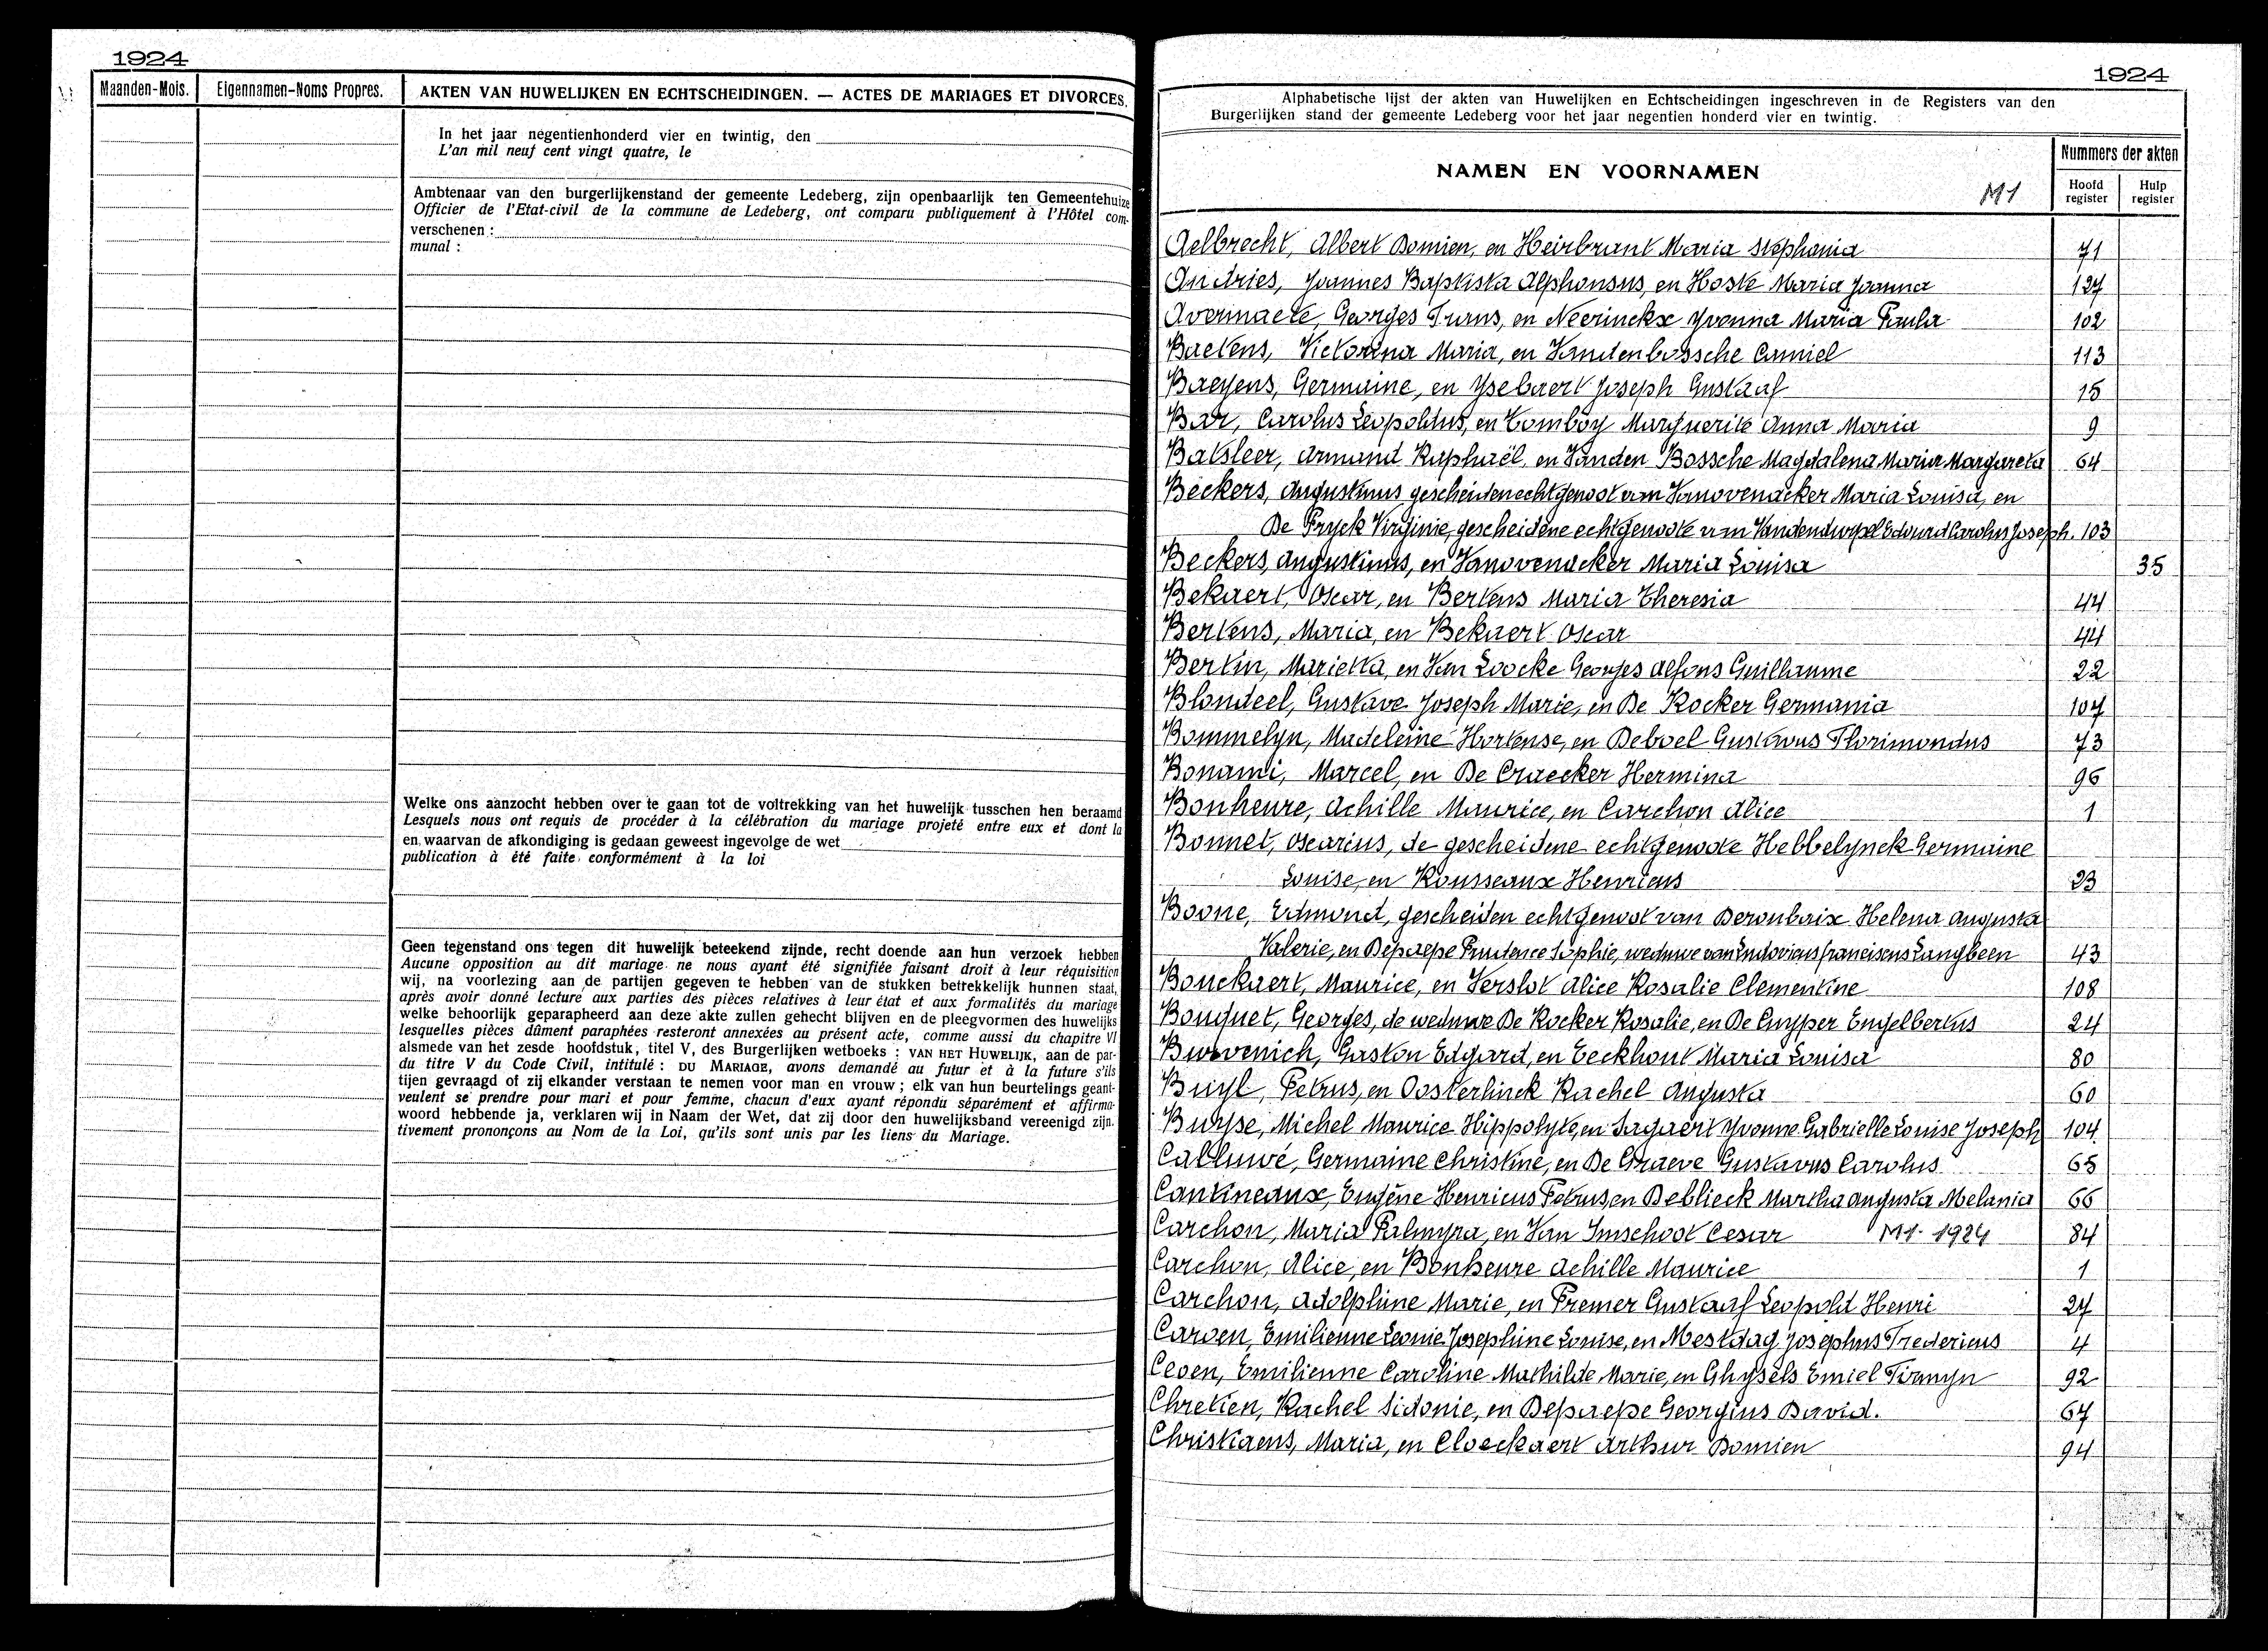 1924
Maanden-Mois.
Eigennamen-Noms Propres.
AKTEN VAN HUWELIJKEN EN ECHTSCHEIDINGEN. — ACTES DE MARIAGES ET DIVORCES.
In het jaar negentienhonderd vier en twintig, den
L'an mil neuf cent vingt quatre, le
Ambtenaar van den burgerlijkenstand der gemeente Ledeberg, zijn openbaarlijk ten Gemeentehuize
Officier de l'Etat-civil de la commune de Ledeberg, ont comparu publiquement à l'Hôtel com-
verschenen :
munal :
Welke ons aanzocht hebben over te gaan tot de voltrekking van het huwelijk tusschen hen beraamd
Lesquels nous ont requis de procéder à la célébration du mariage projeté entre eux et dont la
en waarvan de afkondiging is gedaan geweest ingevolge de wet
publication à été faite conformément à la loi
Geen tegenstand ons tegen dit huwelijk beteekend zijnde, recht doende aan hun verzoek hebben
Aucune opposition au dit mariage ne nous ayant été signifiée faisant droit à leur réquisition
wij, na voorlezing aan de partijen gegeven te hebben van de stukken betrekkelijk hunnen staat,
après avoir donné lecture aux parties des pièces relatives à leur état et aux formalités du mariage
welke behoorlijk geparapheerd aan deze akte zullen gehecht blijven en de pleegvormen des huwelijks
lesquelles pièces dûment paraphées resteront annexées au présent acte, comme aussi du chapitre VI
alsmede van het zesde hoofdstuk, titel V, des Burgerlijken wetboeks : VAN HET HUWELIJK, aan de par-
du titre V du Code Civil, intitulé : DU MARIAGE, avons demandé au futur et à la future s'ils
tijen gevraagd of zij elkander verstaan te nemen voor man en vrouw ; elk van hun beurtelings geant-
veulent se prendre pour mari et pour femme, chacun d'eux ayant répondu séparément et affirma-
woord hebbende ja, verklaren wij in Naam der Wet, dat zij door den huwelijksband vereenigd zijn.
tivement prononçons au Nom de la Loi, qu'ils sont unis par les liens du Mariage.
1924
Alphabetische lijst der akten van Huwelijken en Echtscheidingen ingeschreven in de Registers van den
Burgerlijken stand der gemeente Ledeberg voor het jaar negentien honderd vier en twintig.
NAMEN EN VOORNAMEN
M1
Nummers der akten
Hoofd register
Hulp register
Aelbrecht, Albert Domien, en Heirbrant Maria Stephania 71
Andries, Joannes Baptista Alphonsus, en Hoste Maria Joanna 127
Avermaete, Georges Furns, en Neerinckx Yvonna Maria Paula 102
Baetens, Victorina Maria, en Vandenbossche Camiel 113
Baeyens, Germaine, en Ysebaert Joseph Gustaaf 15
Bar, Carolus Leopoldus, en Comboy Marguerite Anna Maria 9
Batsleer, Armand Raphaël, en Vanden Bossche Magdalena Maria Margareta 64
Beckers, Augustinus gescheiden echtgenoot van Vanovenacker Maria Louisa, en
De Pryck Virginie, gescheidene echtgenoote van Vandendurpel Edouard Carolus Joseph. 103
Beckers, Augustinus, en Vanovenacker Maria Louisa 35
Bekaert, Oscar, en Bertens Maria Theresia 44
Bertens, Maria, en Bekaert Oscar 44
Bertin, Marietta, en Van Loocke Georges Alfons Guillaume 22
Blondeel, Gustave Joseph Marie, en De Kocker Germania 107
Bommelyn, Madeleine Hortense, en Deboel Gustavus Florimondus 73
Bonami, Marcel, en De Craecker Hermina 96
Bonheure, Achille Maurice, en Carchon Alice 1
Bonnet, Oscarius, de gescheidene echtgenoote Hebbelynck Germaine
Louise, en Rousseaux Henricus 23
Boone, Edmond, gescheiden echtgenoot van Deroubaix Helena Augusta
Valerie, en Depaepe Prudence Sophie, weduwe van Ludovicus Franciscus Langbeen 43
Bouckaert, Maurice, en Verslot Alice Rosalie Clementine 108
Bouquet, Georges, de weduwe De Kocker Rosalie, en De Cuyper Engelbertus 24
Buvenich, Gaston Edgard, en Eeckhout Maria Louisa 80
Buyl, Petrus, en Oosterlinck Rachel Augusta 60
Buysse, Michel Maurice Hippolyte, en Sagaert Yvonne Gabrielle Louise Joseph 104
Calluwé, Germaine Christine, en De Graeve Gustavus Carolus 65
Cantineaux, Eugène Henricus Petrus, en Deblieck Martha Augusta Melania 66
Carchon, Maria Palmyra, en Van Imschoot Cesar M1 1924 84
Carchon, Alice, en Bonheure Achille Maurice 1
Carchon, Adolphine Marie, en Premer Gustaaf Leopold Henri 27
Caroen, Emilienne Leonie Josephine Louise, en Mestdag Josephus Fredericus 4
Ceoen, Emilienne Caroline Mathilde Marie, en Ghysels Emiel Firmyn 92
Chretien, Rachel Sidonie, en Depaepe Georgius David. 67
Christiaens, Maria, en Cloeckaert Arthur Domien 94